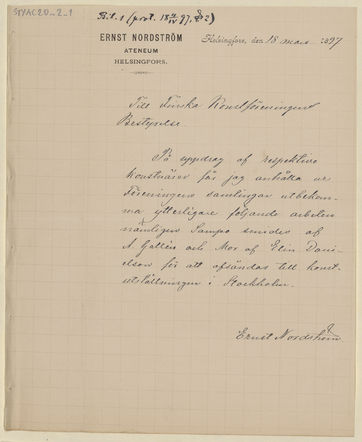 STYAC20_2_1
Bil. 1 (prot. 18 9/IV 97, § 2)
ERNST NORDSTRÖM
ATENEUM
HELSINGFORS.
Helsingfors, den 18 mars 1897
Till Finska Konstföreningens
Bestyrelse.
På uppdrag af respektive
konstnärer får jag anhålla ur
Föreningens samlingar utbekom-
ma ytterligare följande arbeten
nämligen Sampo smides af
A Gallén och Mor af Elin Dani-
elson för att afsändas till konst-
utställningen i Stockholm.
Ernst Nordström